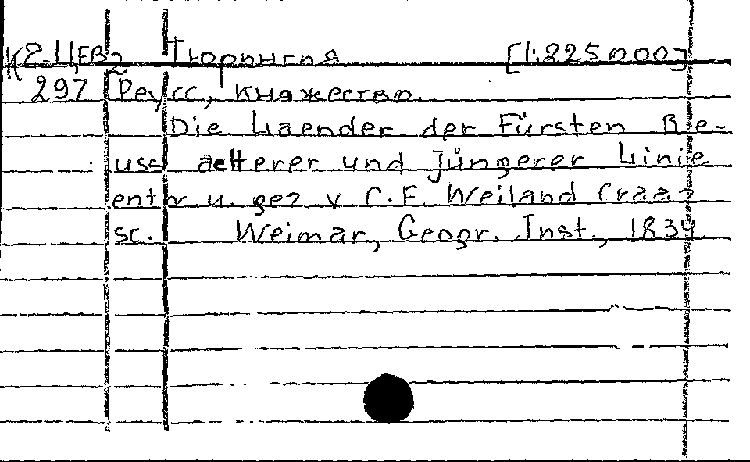 К2-Ц,ЕВ2 Тюрингия [1:225000]
297 Реусс, княжество.
Die Laender der Fürsten Re-
uss aelterer und jüngerer Linie
entw u. gez v C.F. Weiland Graaz
sc. Weimar, Geogr. Inst., 1834